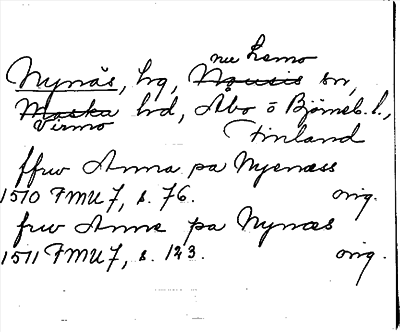 nu Lemo
Nynäs, hg, Nousis sn,
Maska hd, Åbo ö Björneb. l.,
Virmo
Finland
ffrw Anna pa Nyenæss
1510 FMU 7, s. 76. orig.
frw Anne pa Nynæs
1511 FMU 7, s. 123. orig.